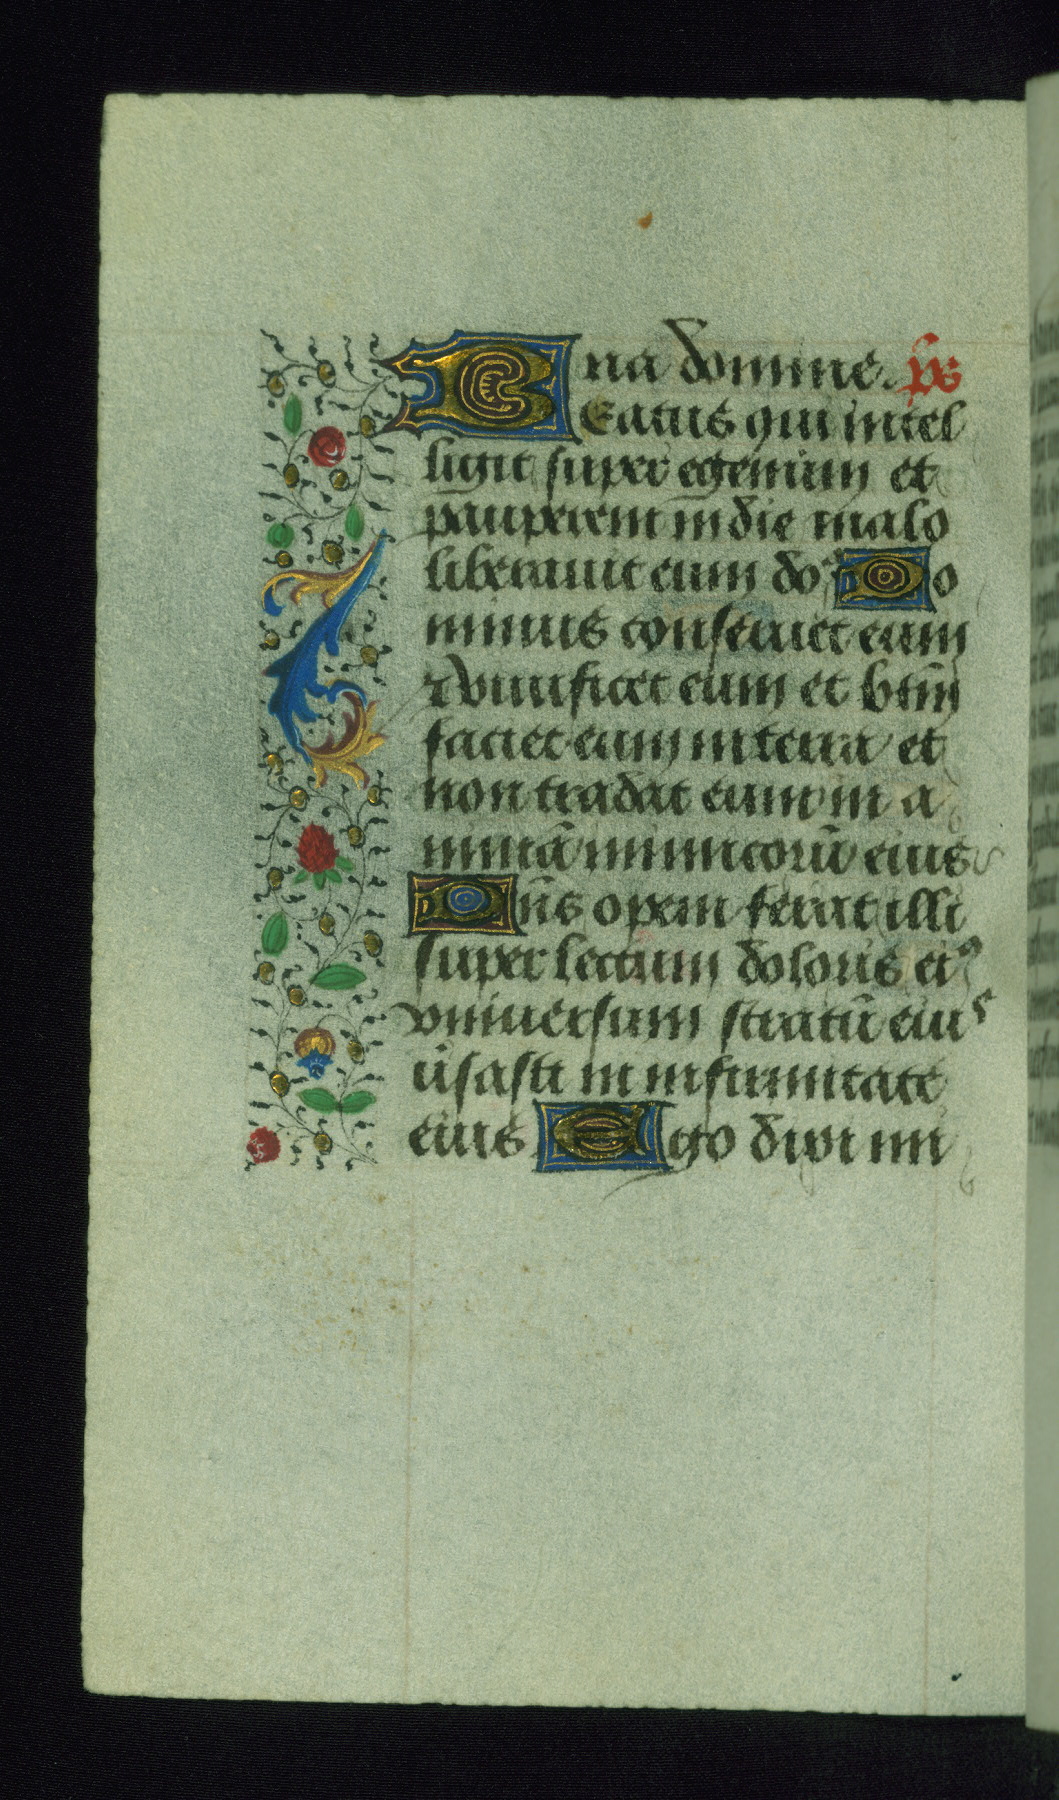 na domine. ps
Beatus qui intel
ligit super egenum et
pauperem in die malo
liberauit eum do⁹ Do
minus conseruet eum
⁊ viuificet eum et btm̄
faciet eum in terra et
non tradat eum in a
nimā inimicorū eius
Dn̄s opem ferat illi
super lectum doloris ei⁹
vniuersum stratū eius
v̄sasti in infirmitate
eius Ego dixi mi